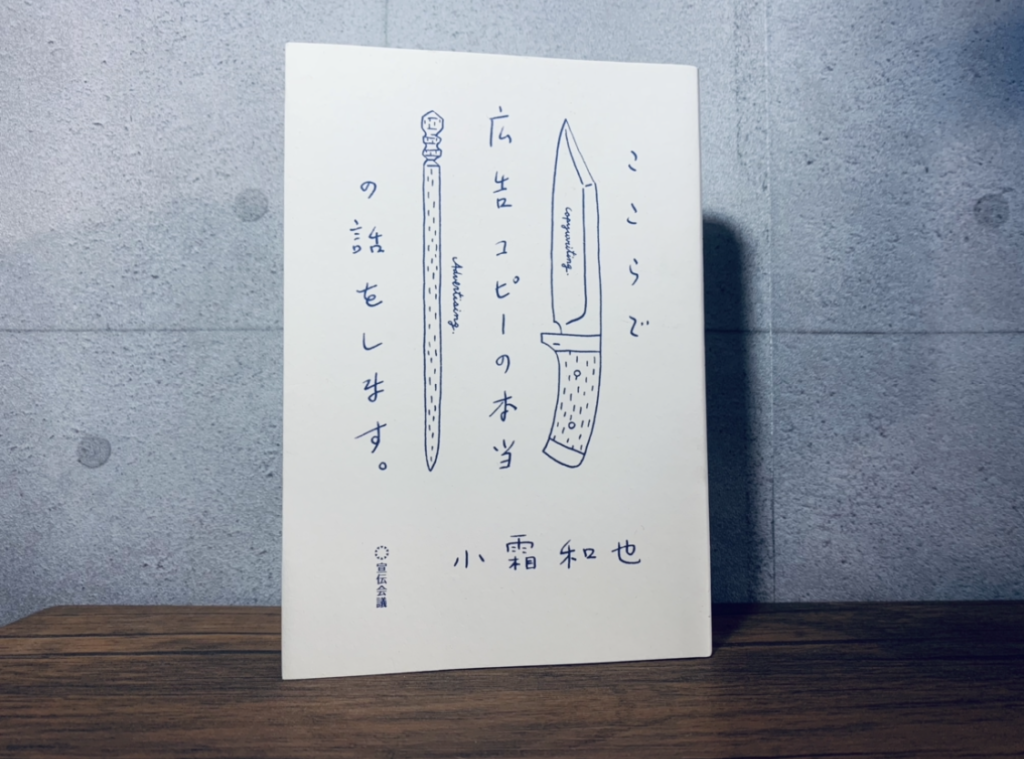 ここらで
copywriting.
広告コピーの本当
Advertising.
の話をします。
小霜和也
宣伝会議